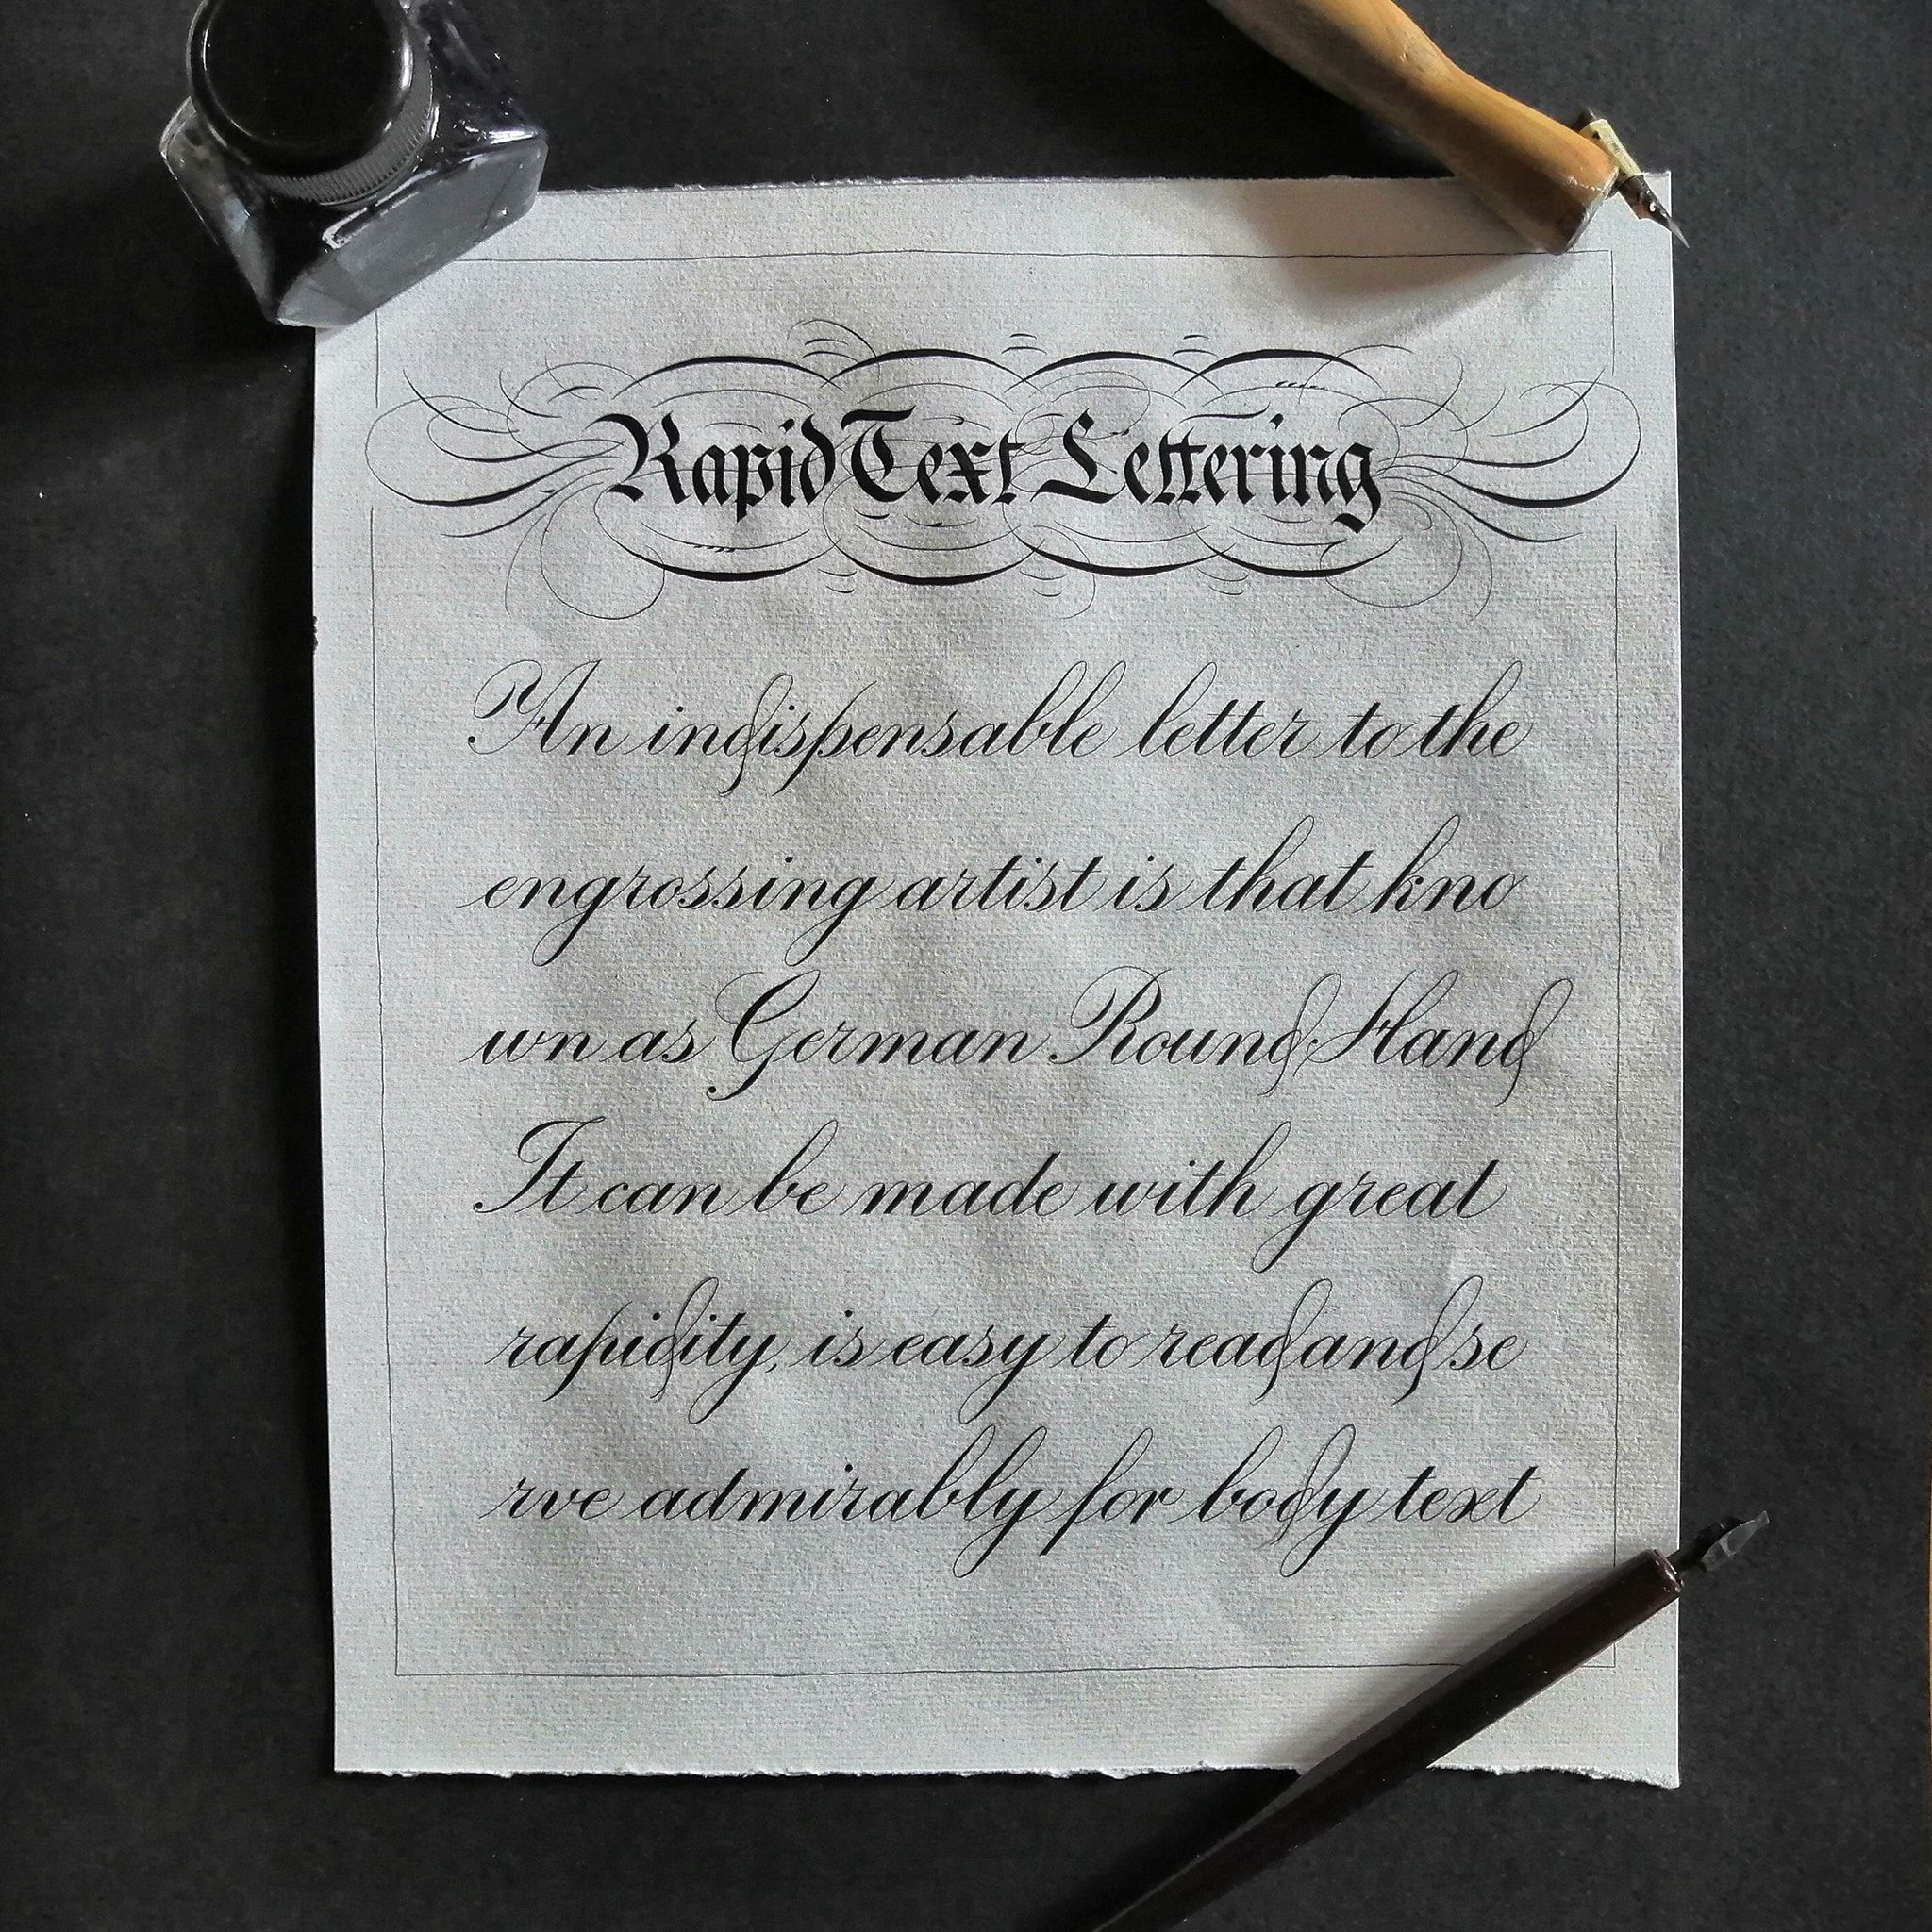 Rapid Text Lettering
An indispensable letter to the
engrossing artist is that kno
wn as German Round Hand
It can be made with great
rapidity, is easy to read and se
rve admirably for body text